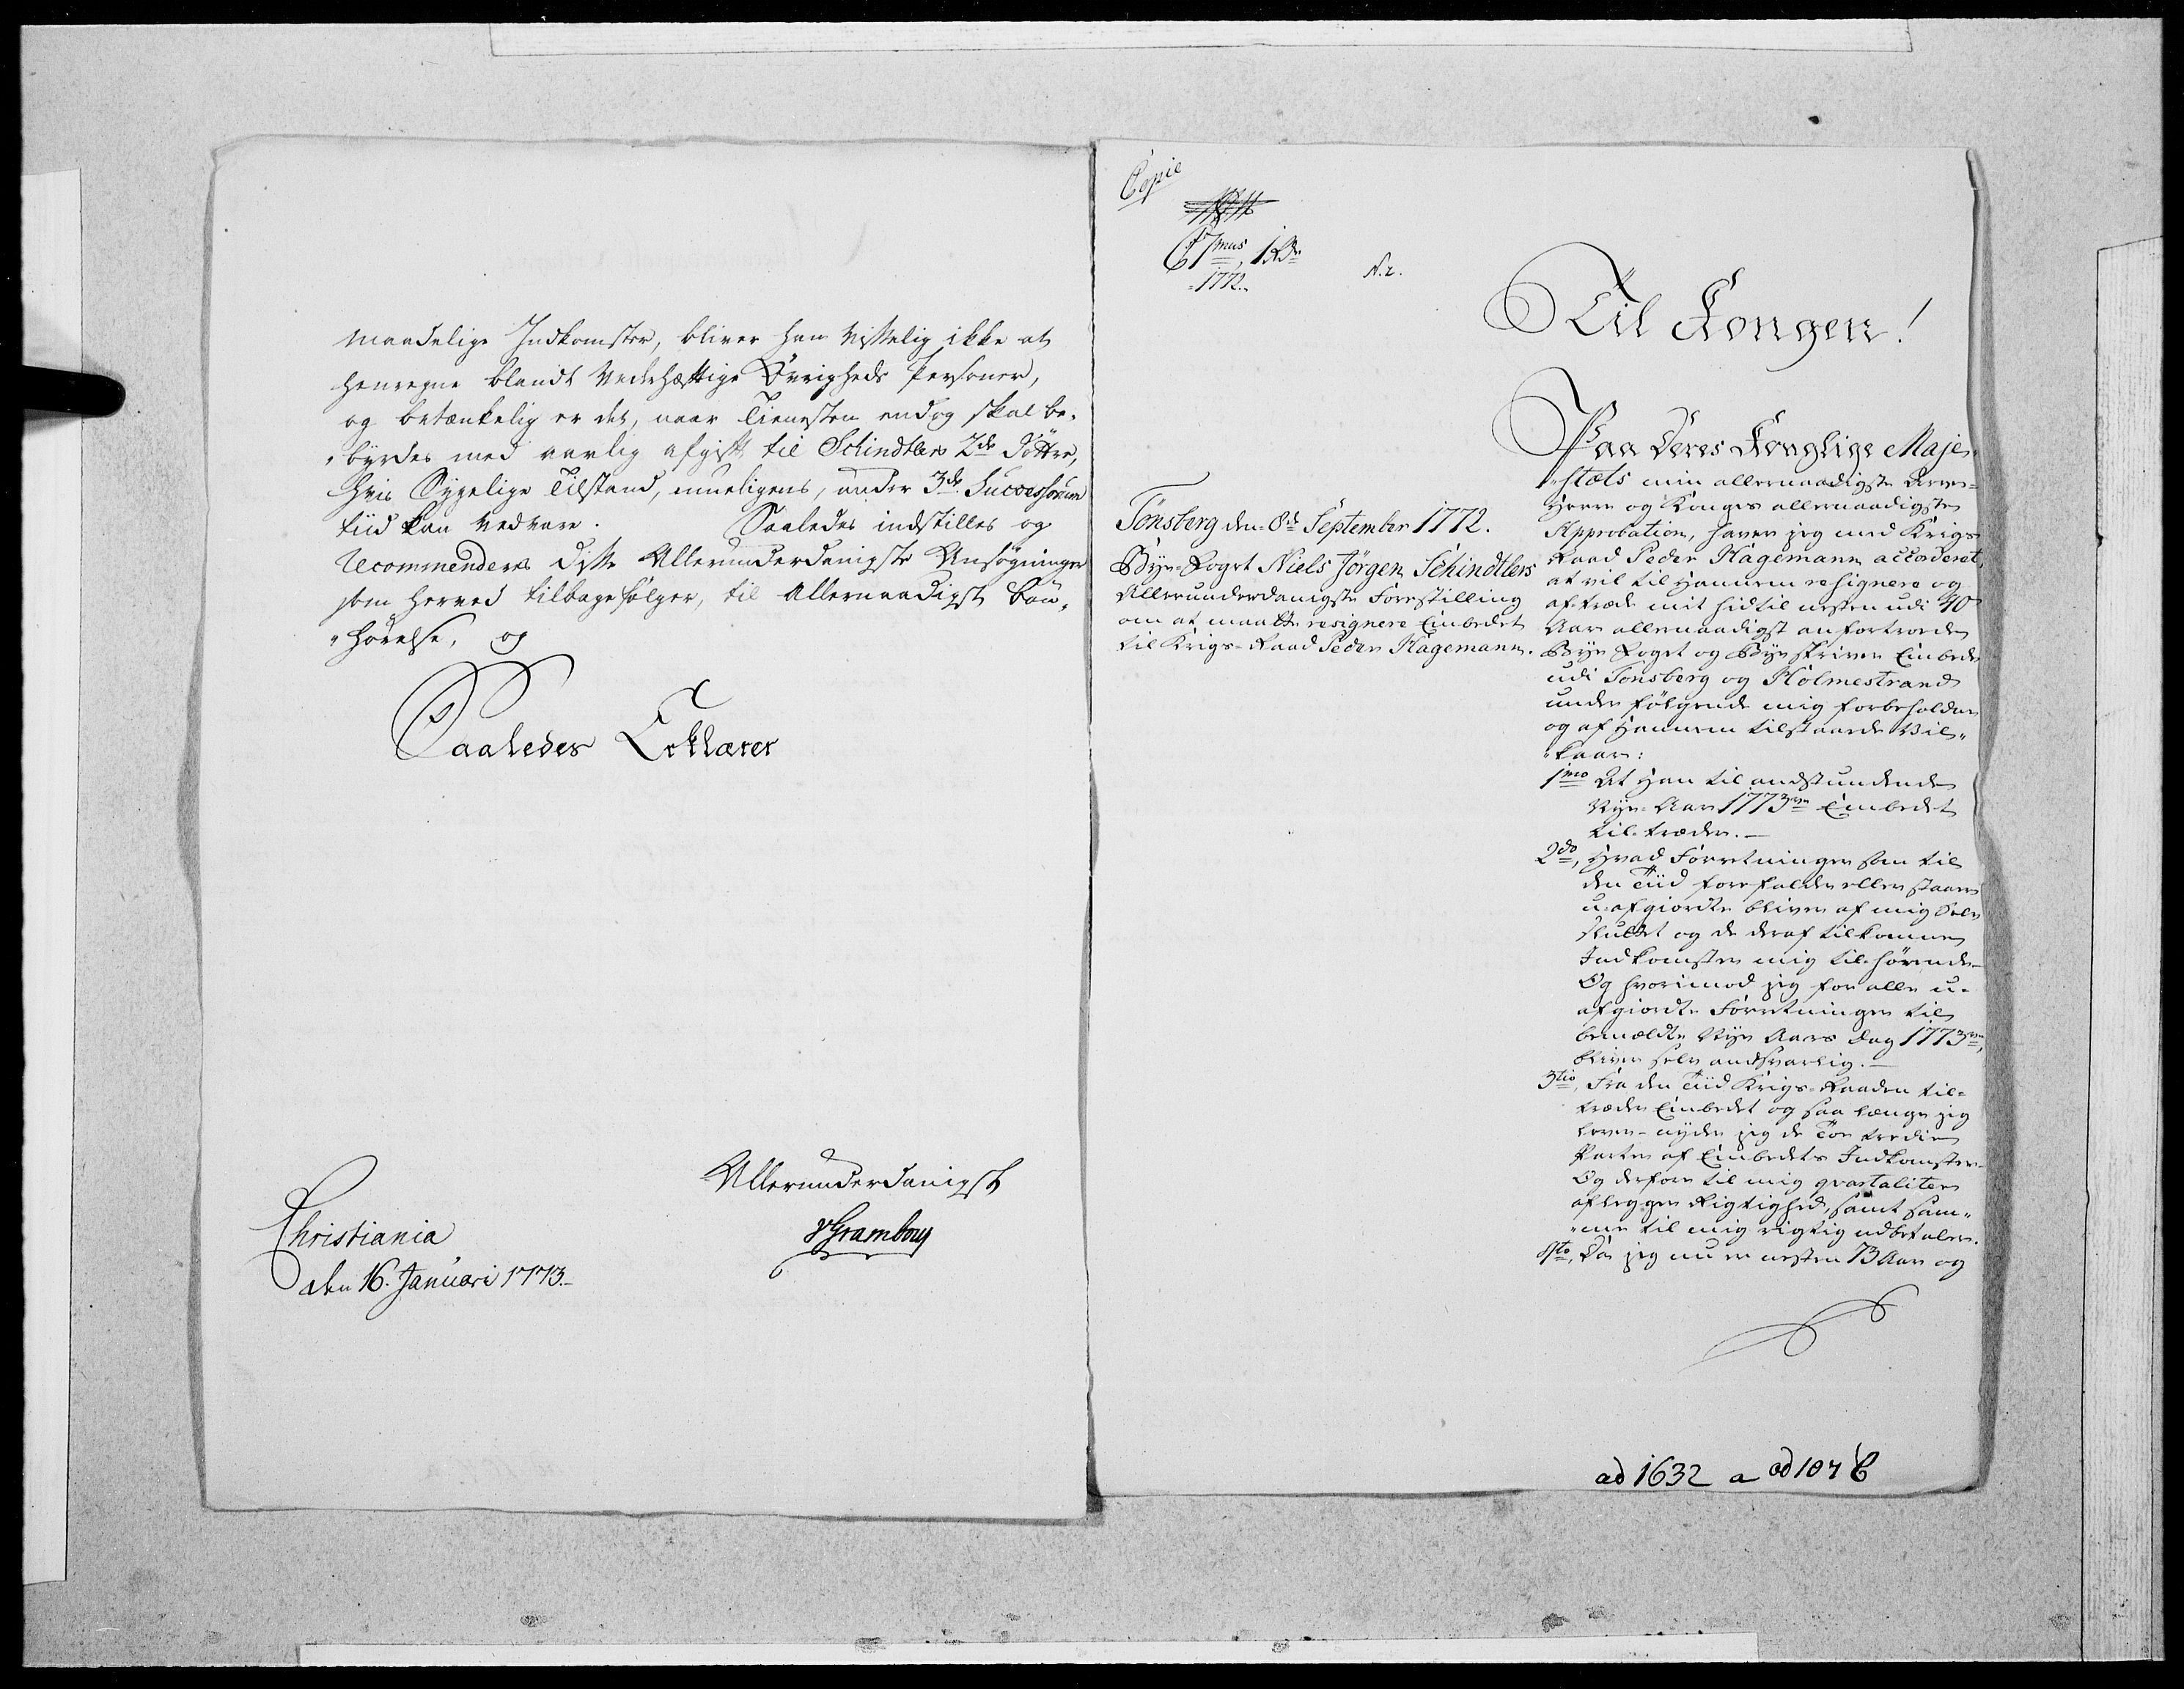 maadelige Indkomster, bliver han visselig ikke at
henregne blandt Vederhæftige Øvrigheds Personer,
og betænkelig er det, naar Tienesten endog skal be-
„byrdes med aarlig afgift til Schindtlers 2de Döttre,
hvis Sygelige Tilstand, mueligens, under 3de Successorum
tiid kan vedvare. Saaledes indstilles og
recommenderes disse Allerunderdanigste Ansøgninger
som herved tilbagefølger, til Allernaadigst bøn-
„hørelse, og
Saaledes Erklærer
Allerunderdanigst
Christiania
den 16. Januari 1773.
Copie
6 7mus, 1 Rdr
1772.
N. 2.
Til Kongen!
Tönsberg den 8de September 1772.
Bye-Foget Niels Jörgen Schindtlers
Allerunderdanigste Forestilling
om at maatte resignere Embedet
til Krigs-Raad Peder Hagemann.
Paa Deres Konglige Maje-
„stæts min allernaadigste Arve-
Herre og Konges allernaadigste
Approbation, haver jeg med Krigs
Raad Peder Hagemann accorderet,
at vil til Hannem resignere og
aftræde mit hidtil nesten udi 40
Aar allernaadigst anfortroede
Bye Foget og Bye skriver Embede
udi Tonsberg og Holmestrand
under følgende mig forbeholdne
og af Hannem tilstaaede Vil-
„kaar:
1mo At Han til andstundende
Nye-Aar 1773 Embedet
til-træder.
2do, Hvad Forretninger som til
den Tiid forefalder eller staaer
u-afgiordte bliver af mig Selv
sluttet og de deraf tilkomne
Indkomster mig til-hørende
Og hvorimod jeg for alle u-
afgiordte Forretninger til
bemeldte Nye Aars Dag 1773,
bliver selv andsvarlig.
3tio, Fra den Tiid Krigs-Raaden til-
træder Embedet og saa længe jeg
lever nyder jeg de Toe tredie
Parter af Embedets Indkomster
Og derfore til mig qvartaliter
aflegger Rigtighed, samt sam-
„me til mig rigtig udbetaler.
4to, Da jeg nu er nesten 73 Aar og
ad 1632 a ad 107 C